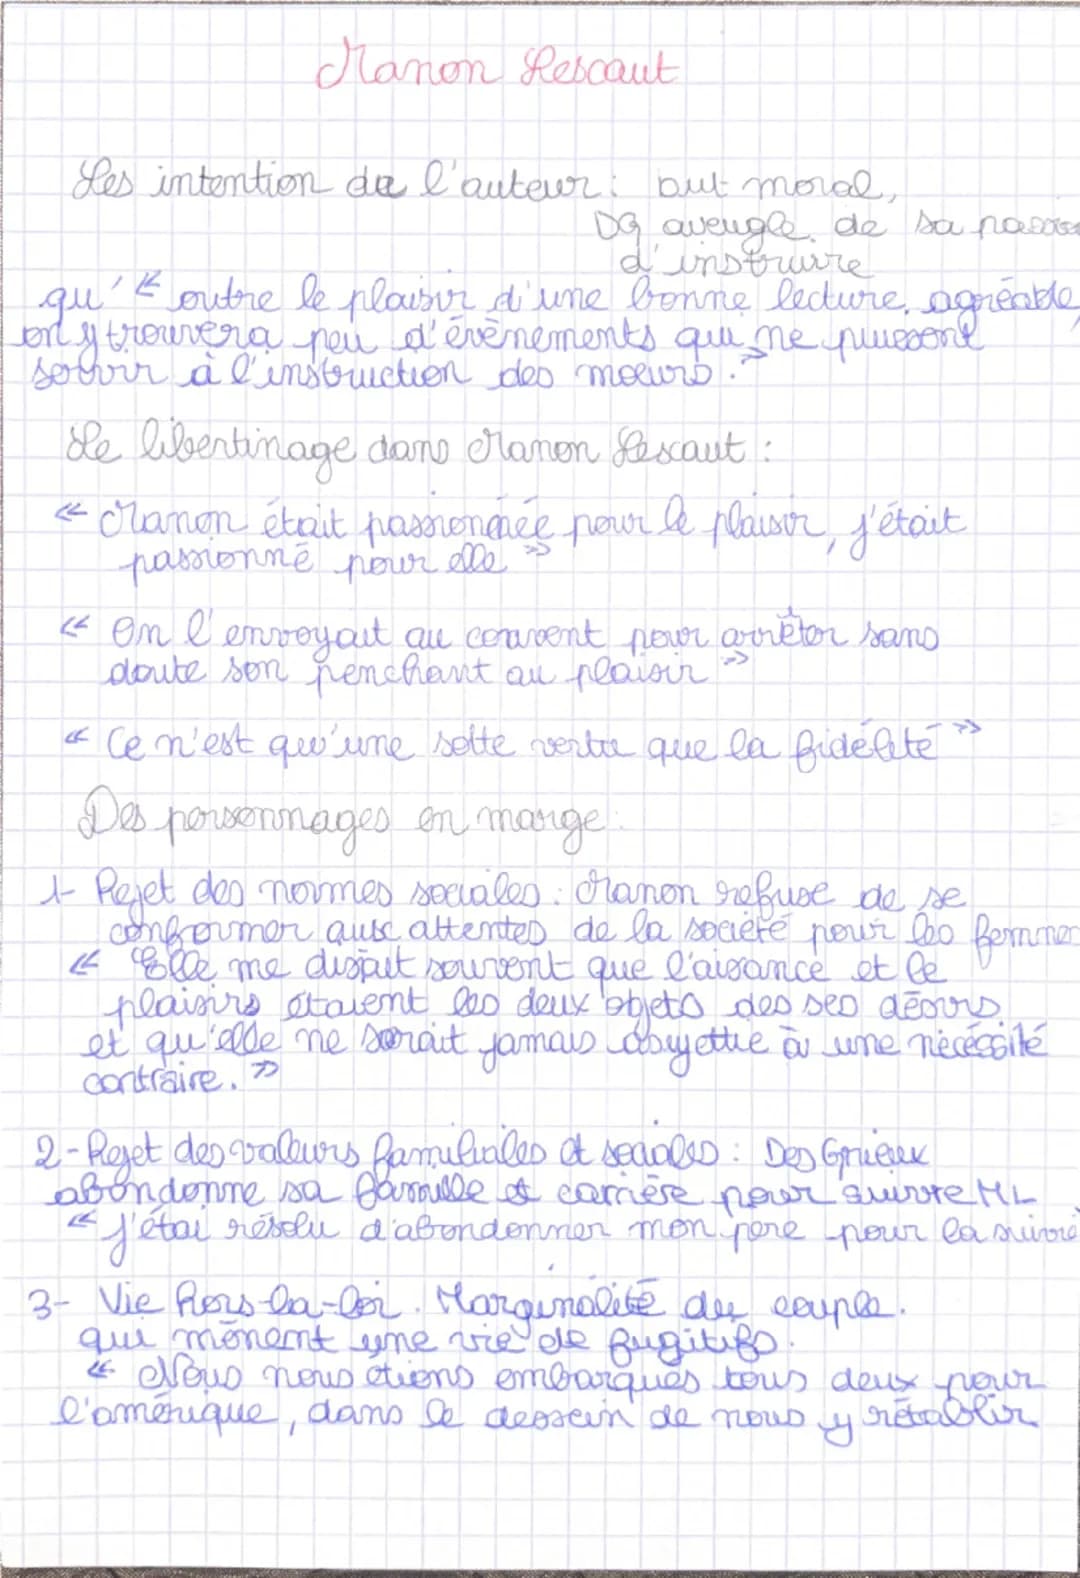 Manon Lescaut
Les intention de l'auteur : but moral,
DG aveugle de sa passion
d'instruire
qu' « outre le plaisir d'une bonne lecture, agréable,
on y trouvera peu d'évènements qui ne puissent
servir à l'instruction des moeurs. »
Le libertinage dans Manon Lescaut :
« Manon était passionnée pour le plaisir, j'était
passionné pour elle »
« On l'envoyait au couvent pour arrêter sans
doute son penchant au plaisir »
« Ce n'est qu'une sotte vertu que la fidélité »
Des personnages en marge :
1- Rejet des normes sociales : Manon refuse de se
conformer aux attentes de la société pour les femmes
« Elle me disait souvent que l'aisance et le
plaisirs étaient les deux objets des ses désirs,
et qu'elle ne serait jamais assujettie à une nécéssité
contraire. »
2- Rejet des valeurs familiales et sociales : Des Grieux
abandonne sa famille et carrière pour suivre ML
« J'étai résolu d'abondonner mon père pour la suivre
3- Vie hors-la-loi. Marginalité du couple.
qui mènent une vie de fugitifs.
« Nous nous étions embarqués tous deux pour
l'amérique, dans le dessein de nous y rétablir